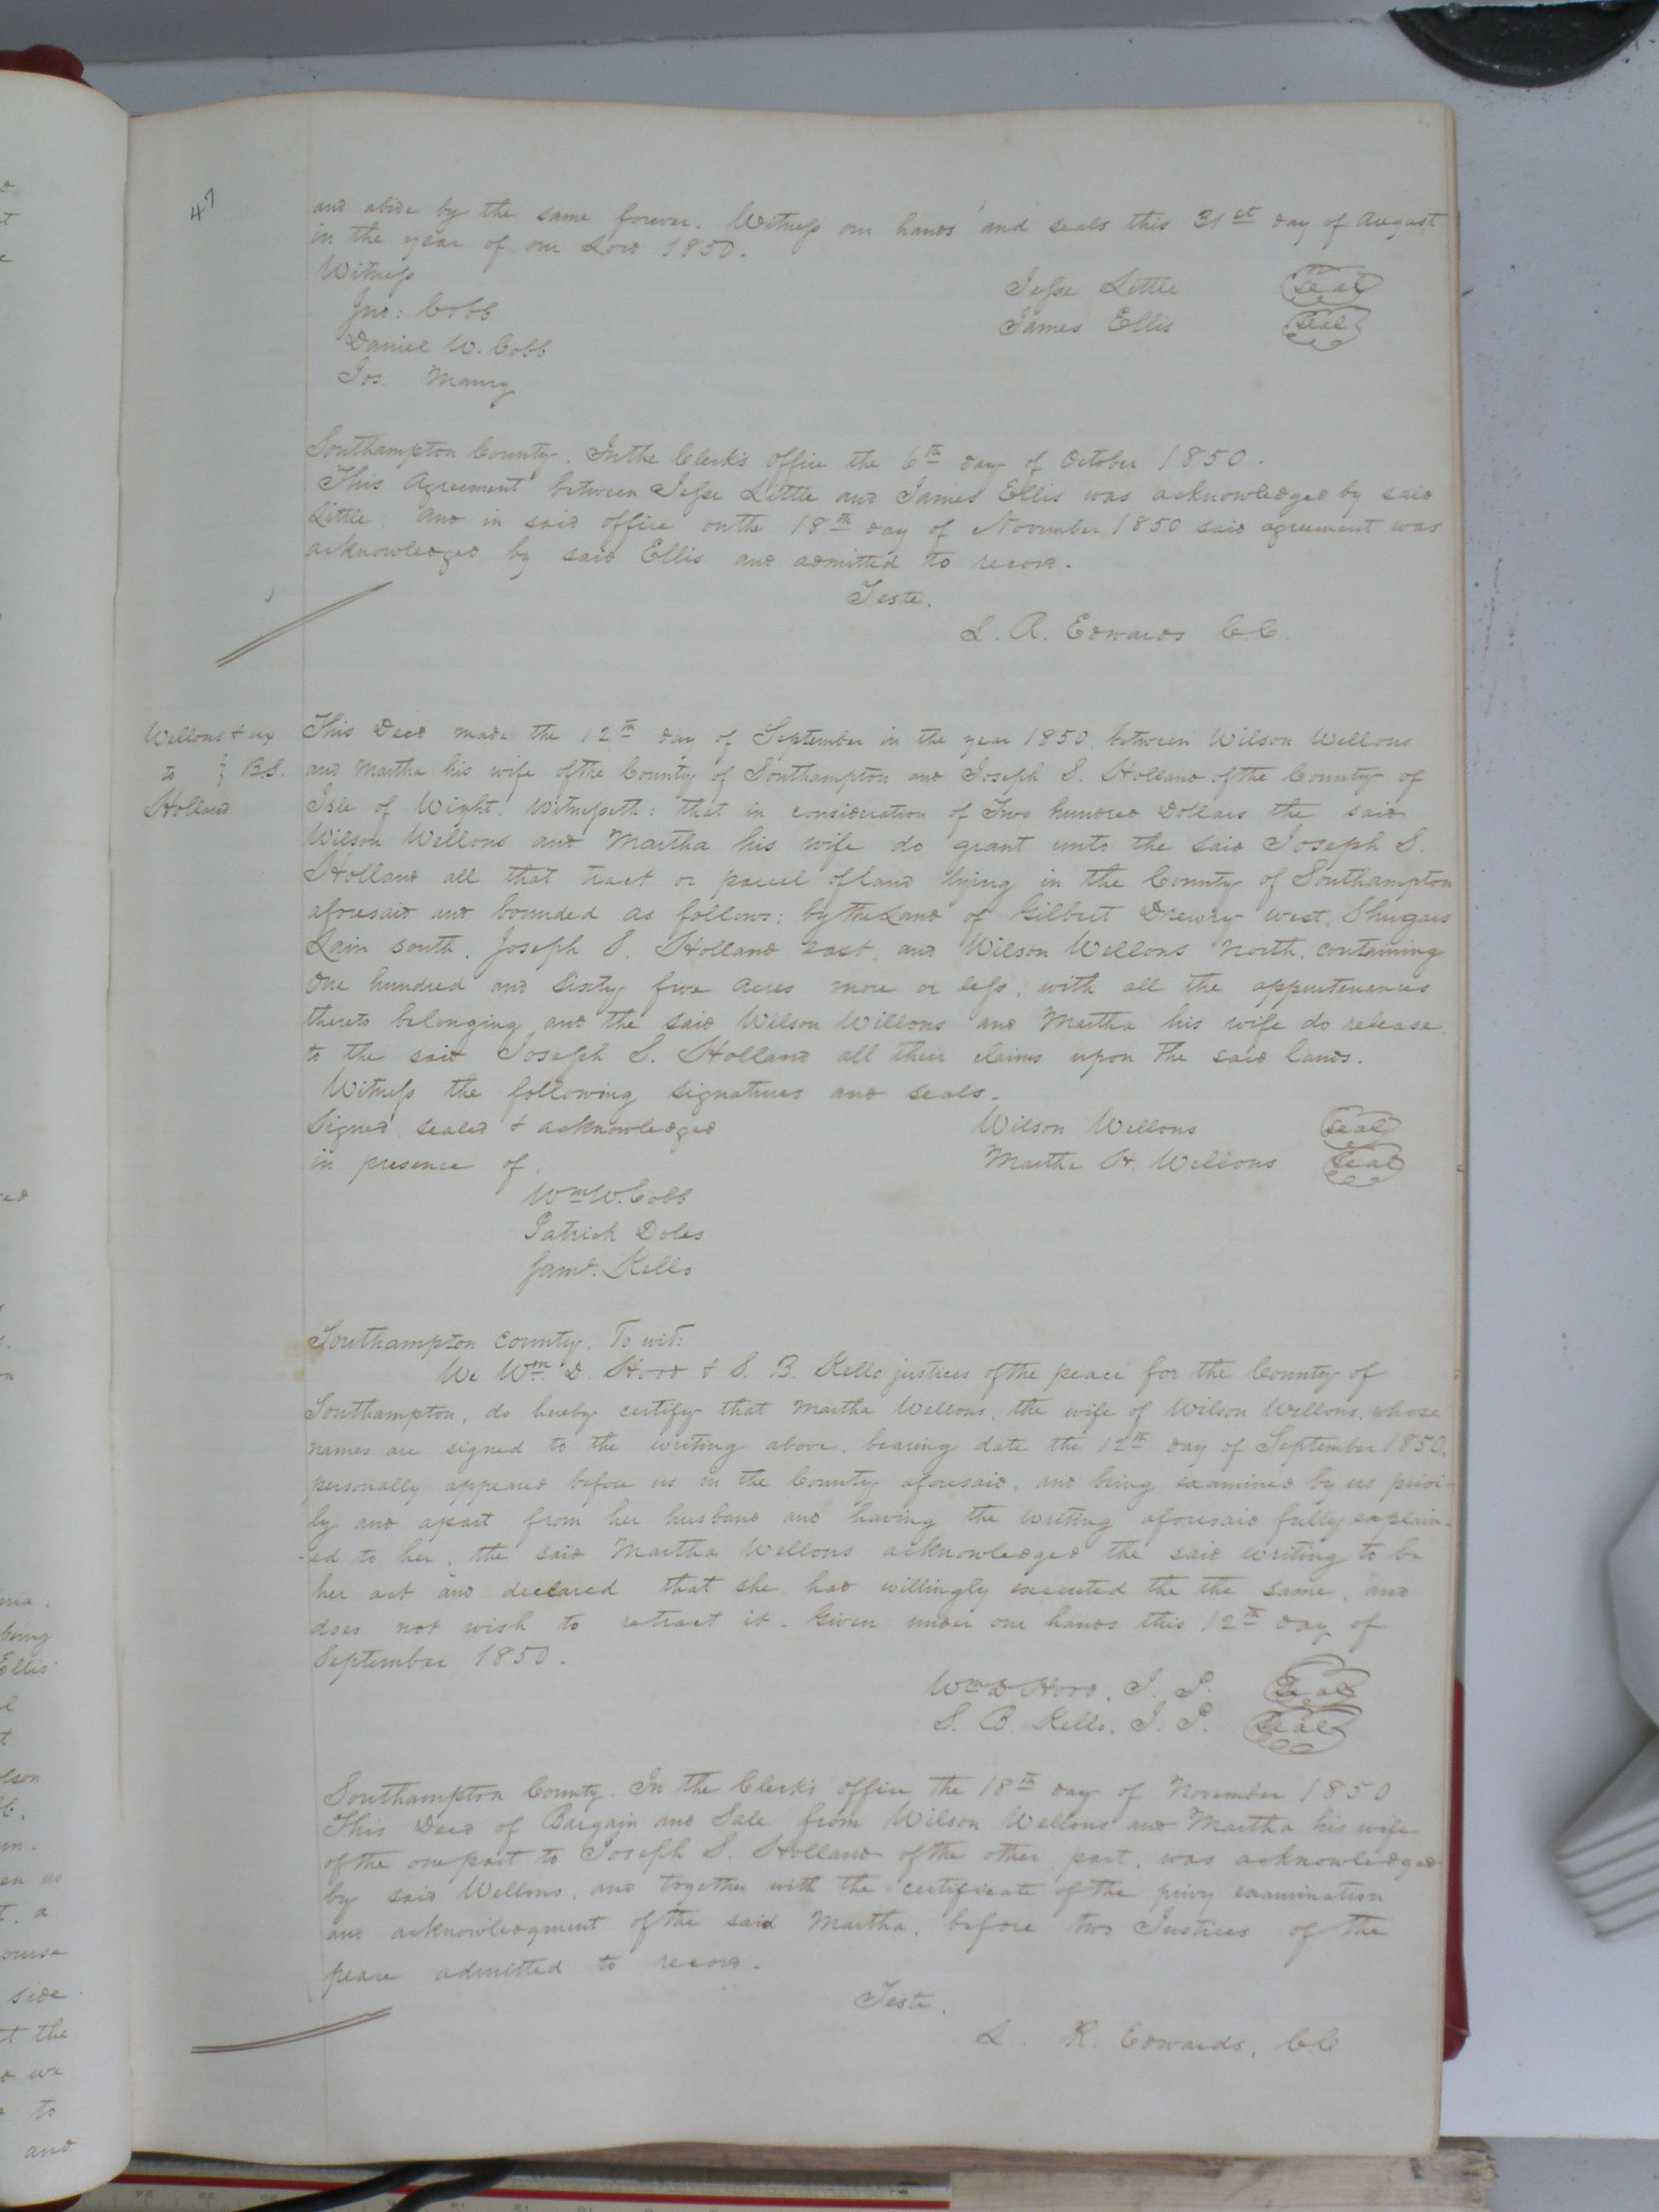 47
and abide by the same forever. Witness our hands and seals this 31st day of August
in the year of our Lord 1850.
Witness
Jesse Little Seal
Jno: Cobb
James Ellis Seal
Daniel W. Cobb
Jos. Maury
Southampton County. In the Clerk's office the 6th day of October 1850.
This Agreement between Jesse Little and James Ellis was acknowledged by said
Little, And in said office on the 18th day of November 1850 said agreement was
acknowledged by said Ellis and admitted to record.
Teste.
L. R. Edwards C.C.
Wellons & ux
to } B.S.
Holland
This Deed made the 12th day of September in the year 1850 between Wilson Wellons
and Martha his wife of the County of Southampton and Joseph S. Holland of the County of
Isle of Wight. Witnesseth: that in consideration of Two hundred Dollars the said
Wilson Wellons and Martha his wife do grant unto the said Joseph S.
Holland all that tract or parcel of land lying in the County of Southampton
aforesaid and bounded as follows: by the Land of Gilbert Drewry west,
Lain south, Joseph S. Holland east, and Wilson Wellons North, containing
One hundred and Sixty five Acres more or less, with all the appurtenances
thereto belonging and the said Wilson Willons and Martha his wife do release
to the said Joseph S. Holland all their claims upon the said lands.
Witness the following signatures and seals.
Signed sealed & acknowledged
Wilson Wellons Seal
in presence of.
Martha H. Wellons Seal
Wm W. Cobb
Patrick Doles
Kello
Southampton County. To wit:
We Wm. D. Hood & S. B. Kello justices of the peace for the County of
Southampton, do hereby certify that Martha Wellons, the wife of Wilson Wellons, whose
names are signed to the writing above, bearing date the 12th day of September 1850,
personally appeared before us in the County aforesaid, and being examined by us privi-
ly and apart from her husband and having the writing aforesaid fully explain-
-ed to her, the said Martha Wellons acknowledged the said writing to be
her act and declared that she had willingly executed the the same, and
does not wish to retract it. Given under our hands this 12th day of
September 1850.
Wm D Hood, J. P. Seal
S. B. Kello, J. P. Seal
Southampton County. In the Clerk's office the 18th day of November 1850
This Deed of Bargain and Sale from Wilson Wellons and Martha his wife
of the one part to Joseph S. Holland of the other part, was acknowledged
by said Wellons, and together with the certificate of the privy examination
and acknowledgment of the said Martha, before two Justices of the
peace admitted to record.
Teste.
L. R. Edwards, C.C